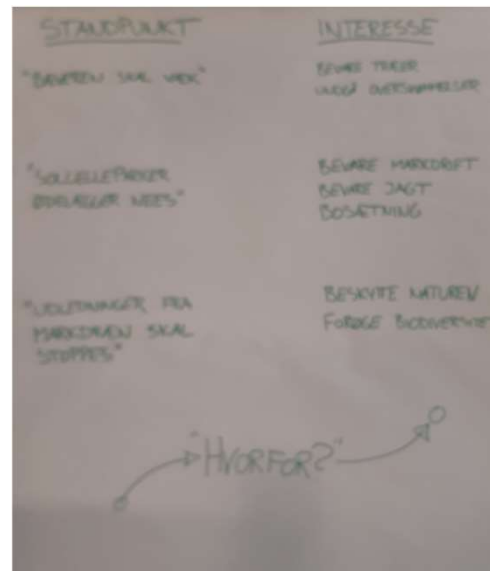 STANDPUNKT
"BÆVEREN SKAL VÆK"
"SOLCELLEPARKER
ØDELÆGGER NEES"
"UDLEDNINGER FRA
MARKDRIVEN SKAL
STOPPES"
INTERESSE
BEVARE TRÆER
UNDGÅ OVERSVØMMELSER
BEVARE MARKDRIFT
BEVARE JAGT
BOSÆTNING
BESKYTTE NATUREN
FORØGE BIODIVERSITET
"HVORFOR?"